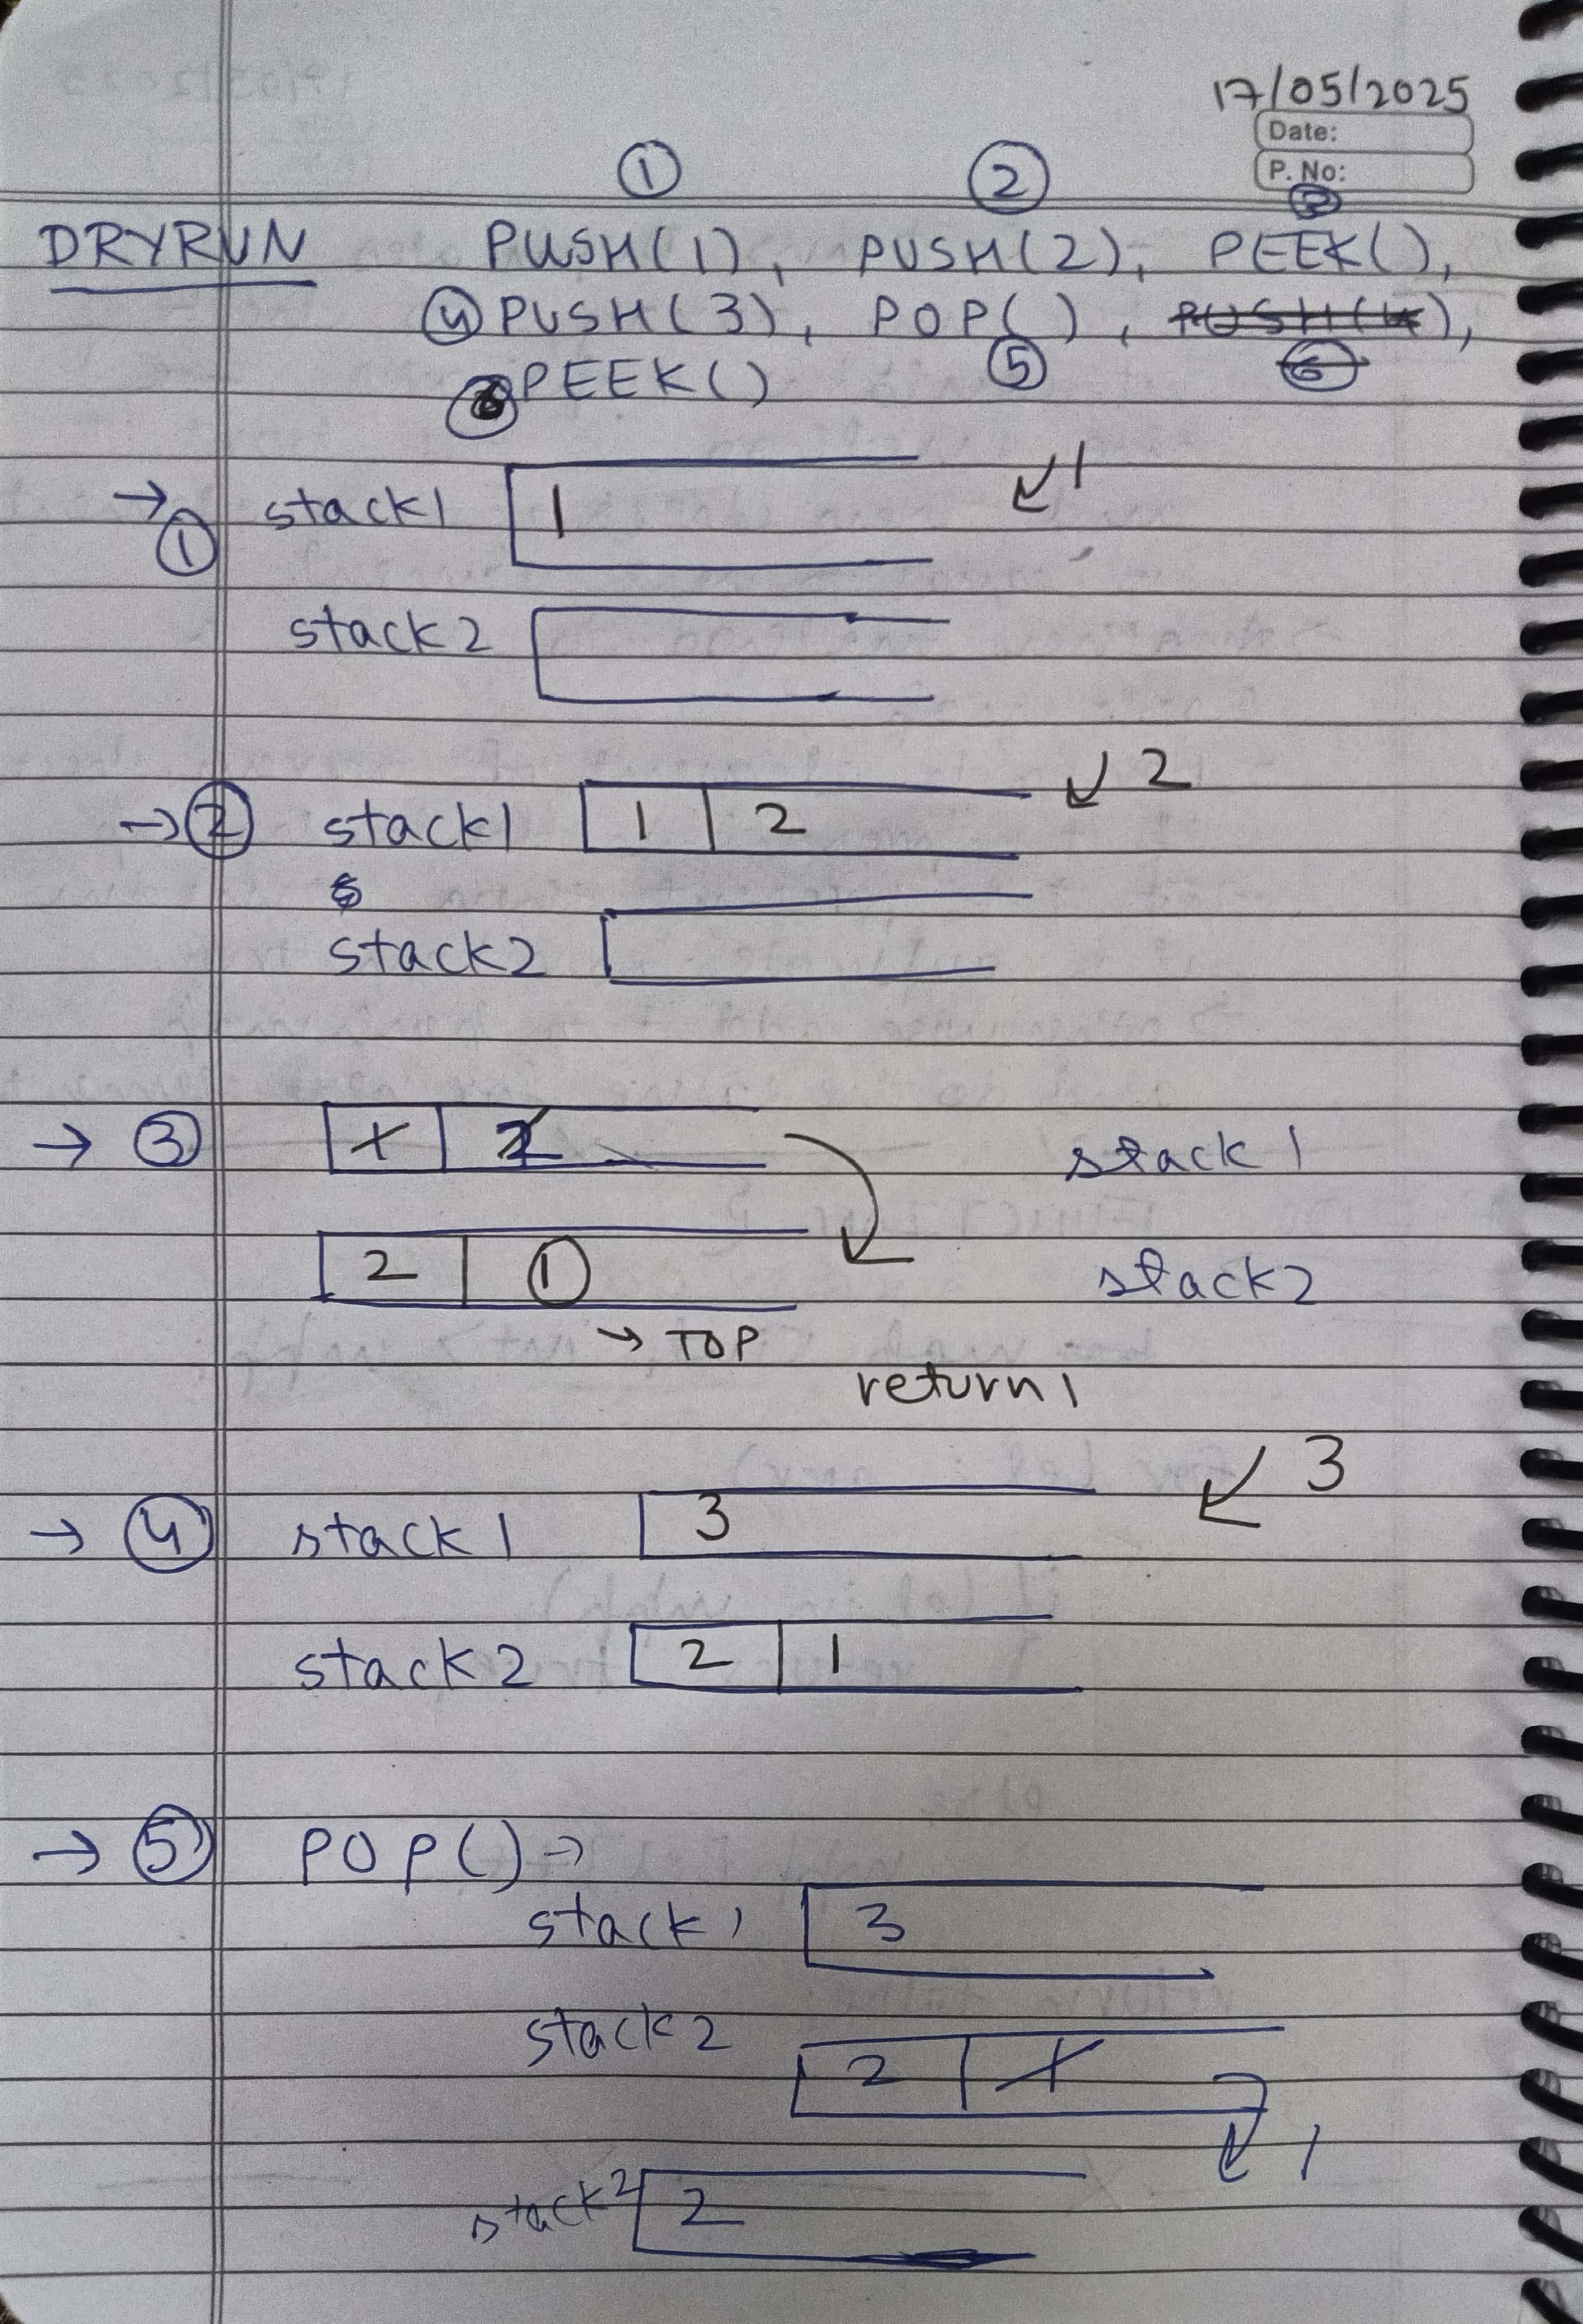 17/05/2025
Date:
P. No:
① ② ③
DRYRUN PUSH(1), PUSH(2), PEEK(),
④ PUSH(3), POP(), PUSH(4),
⑤ ⑥
⑥ PEEK()
→ ① stack1 1 ↙ 1
stack2
→ ② stack1 1 2 ↙ 2
stack2
→ ③ 1 2 stack1
2 ① stack2
→ TOP
return 1
→ ④ stack1 3 ↙ 3
stack2 2 1
→ ⑤ POP() →
stack1 3
stack2 2 1
1
stack2 2